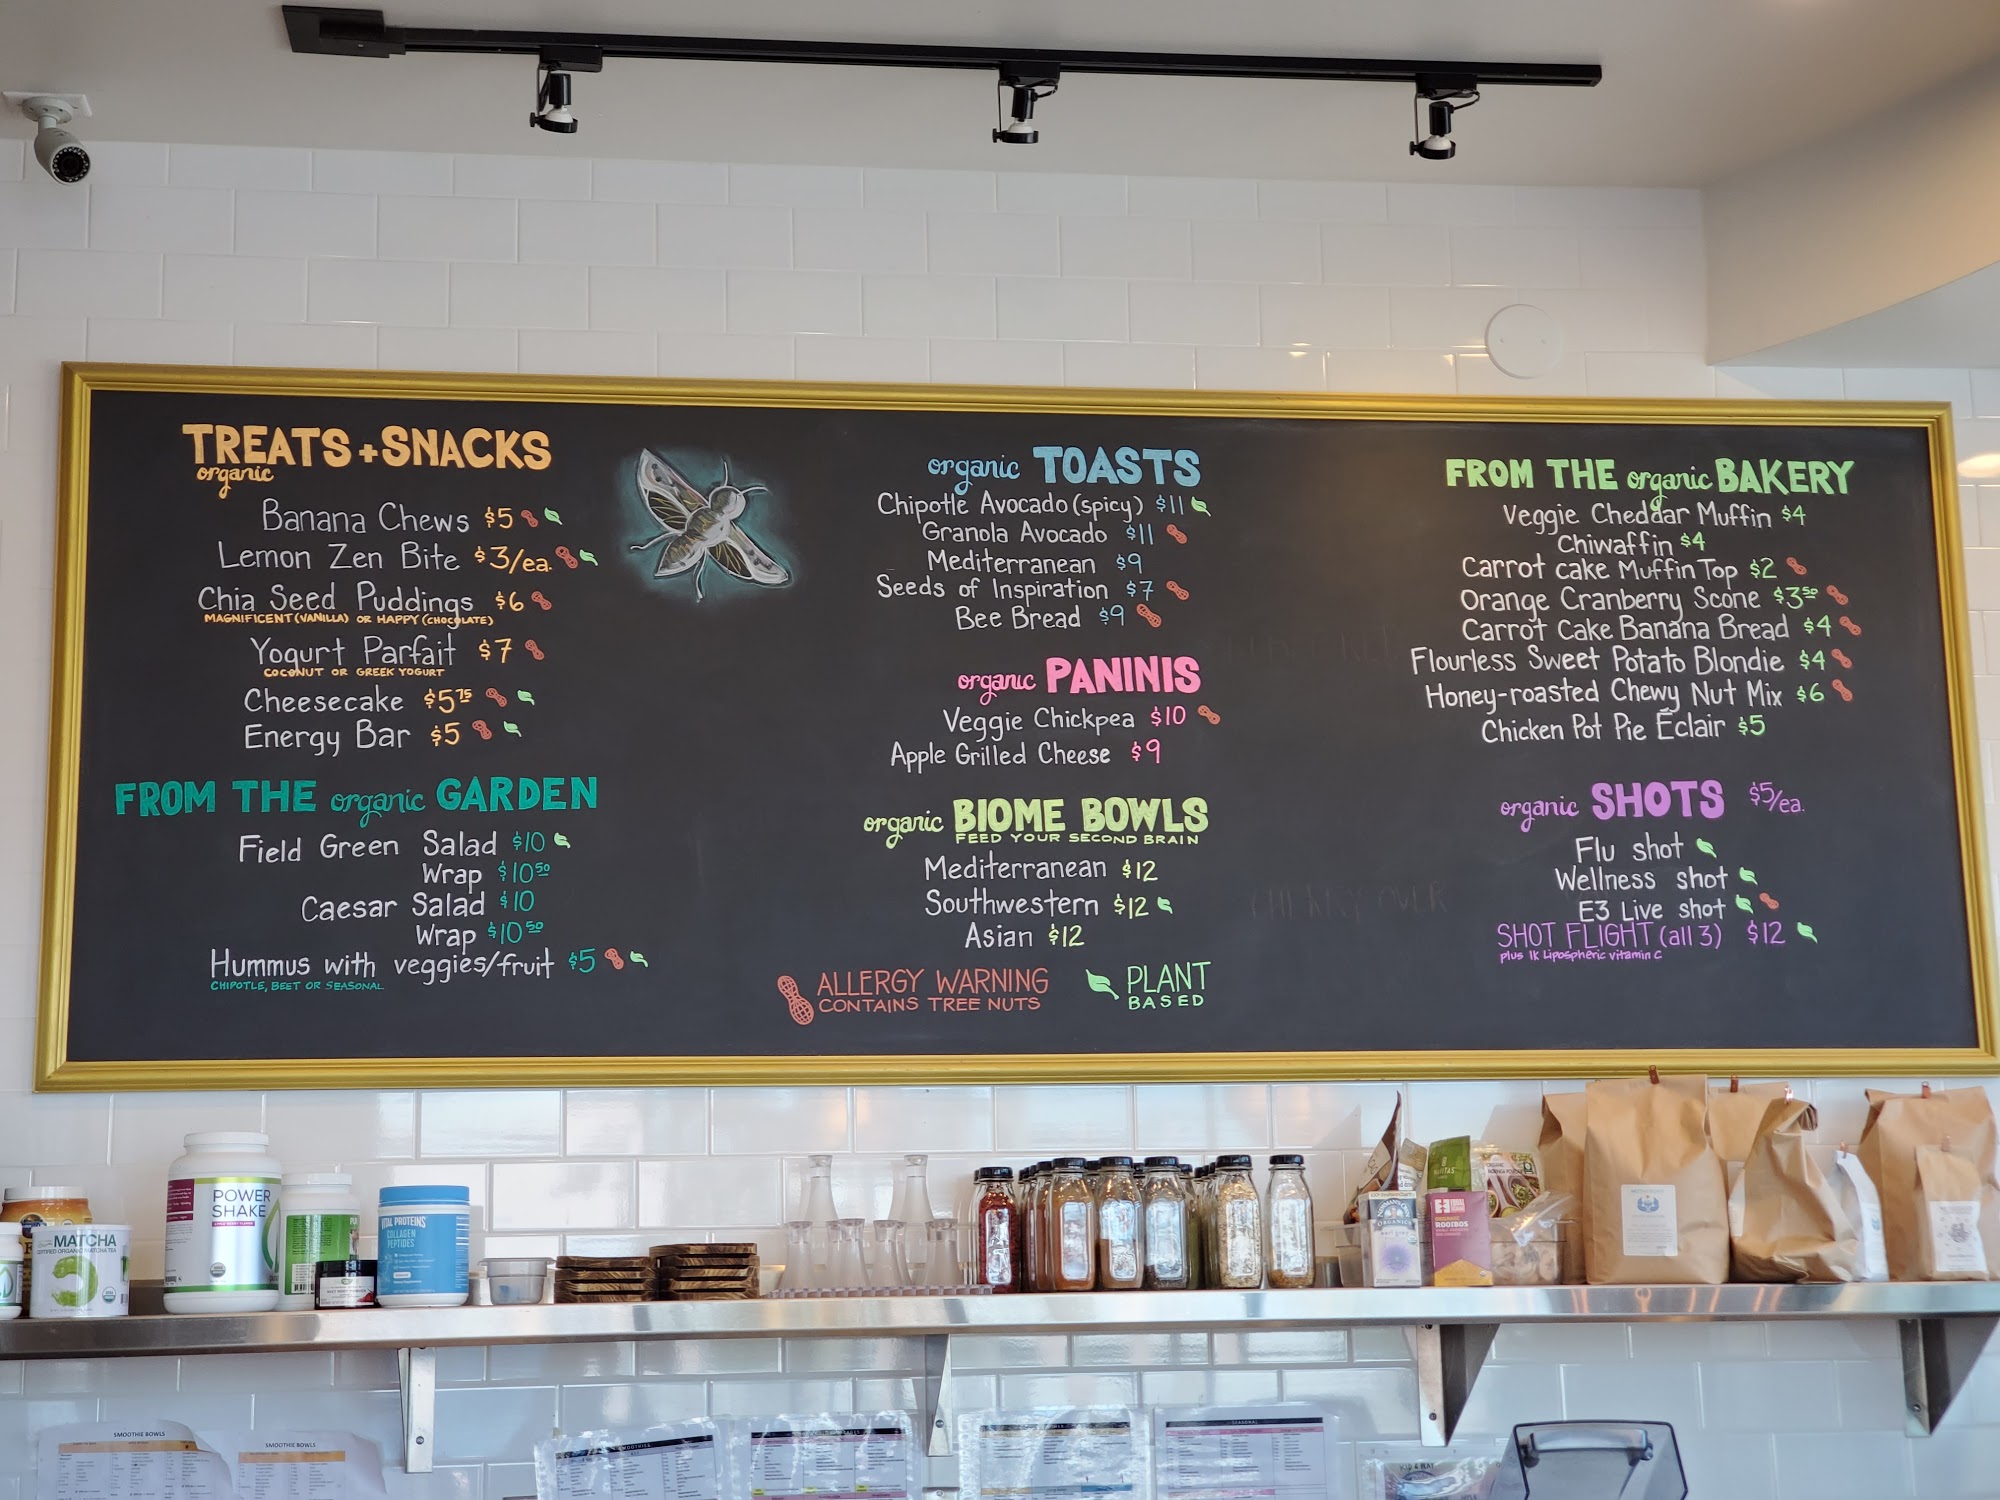 TREATS + SNACKS
organic
Banana Chews $5
Lemon Zen Bite $3/ea.
Chia Seed Puddings $6
MAGNIFICENT (VANILLA) OR HAPPY (CHOCOLATE)
Yogurt Parfait $7
COCONUT OR GREEK YOGURT
Cheesecake $5.75
Energy Bar $5
FROM THE organic GARDEN
Field Green Salad $10
Wrap $10 50
Caesar Salad $10
Wrap $10 50
Hummus with veggies/fruit $5
CHIPOTLE, BEET OR SEASONAL
organic TOASTS
Chipotle Avocado (spicy) $11
Granola Avocado $11
Mediterranean $9
Seeds of Inspiration $7
Bee Bread $9
organic PANINIS
Veggie Chickpea $10
Apple Grilled Cheese $9
organic BIOME BOWLS
FEED YOUR SECOND BRAIN
Mediterranean $12
Southwestern $12
Asian $12
ALLERGY WARNING
CONTAINS TREE NUTS
PLANT
BASED
FROM THE organic BAKERY
Veggie Cheddar Muffin $4
Chiwaffin $4
Carrot cake Muffin Top $2
Orange Cranberry Scone $3 50
Carrot Cake Banana Bread $4
Flourless Sweet Potato Blondie $4
Honey-roasted Chewy Nut Mix $6
Chicken Pot Pie Éclair $5
organic SHOTS $5/ea.
Flu shot
Wellness shot
E3 Live shot
SHOT FLIGHT (all 3) $12
plus 1k Lipospheric vitamin C
MATCHA
CERTIFIED ORGANIC MATCHA TEA
POWER
SHAKE
VITAL PROTEINS
COLLAGEN
PEPTIDES
NAVITAS
ORGANICS
ROOIBOS
SMOOTHIE BOWLS
SMOOTHIE BOWLS
SMOOTHIES
SEASONAL